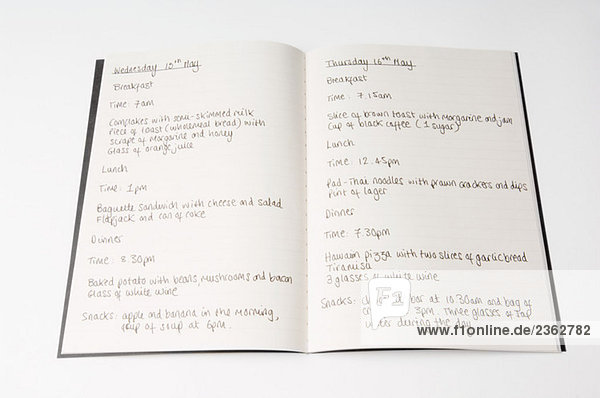 Wednesday 15th May
Breakfast
Time: 7am
Cornflakes with semi-skimmed milk
Piece of toast (wholemeal bread) with
scrape of margarine and honey
Glass of orange juice
Lunch
Time: 1pm
Baguette sandwich with cheese and salad
Flapjack and can of coke
Dinner
Time: 8.30pm
Baked potato with beans, mushrooms and bacon
Glass of white wine
Snacks: apple and banana in the morning,
cup of soup at 6pm.
Thursday 16th May
Breakfast
Time: 7.15am
Slice of brown toast with margarine and jam
Cup of black coffee (1 sugar)
Lunch
Time: 12.45pm
Pad-Thai noodles with prawn crackers and dips
Pint of lager
Dinner
Time: 7.30pm
Hawaiin pizza with two slices of garlic bread
Tiramisu
3 glasses of white wine
Snacks: bar at 10.30am and bag of
3pm. Three glasses of tap
water during the day.
F1 online
www.f1online.de 2362782